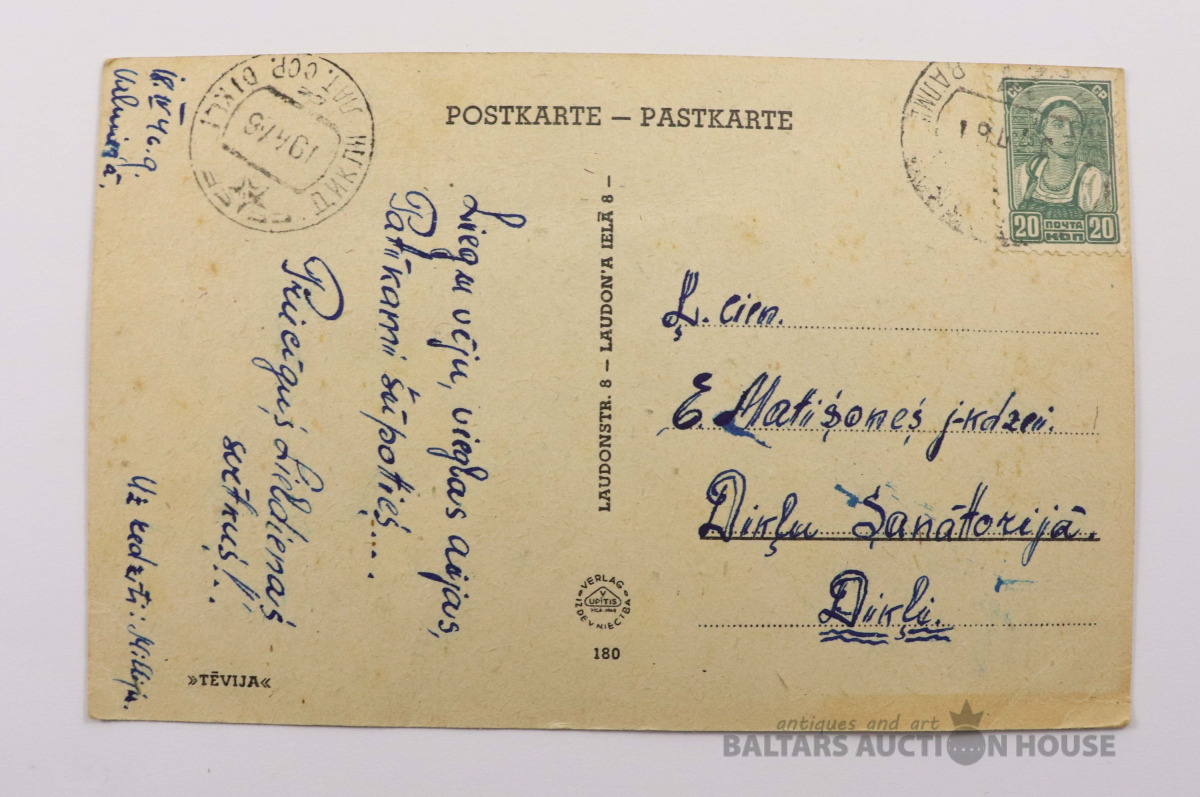 POSTKARTE — PASTKARTE
18.IV 46.g.
Valmierā,
Liegu vēju, vieglas aijas,
Patīkami šūpoties...
Priecīgus Lieldienas
svētkus!..
Uz redzēti:
»TĒVIJA«
ДИКЛИ ЛАТ. ССР. DIKĻI
19 4 46
LAUDONSTR. 8 — LAUDON'A IELĀ 8 —
VERLAG
V
UPĪTIS
IZDEVNIECĪBA
180
СССР
20 ПОЧТА 20
КОП
Ļ. cien.
E. Matīsones j-kdzei.
Dikļu Sanātorijā.
Dikļi.
antiques and art
BALTARS AUCTION HOUSE